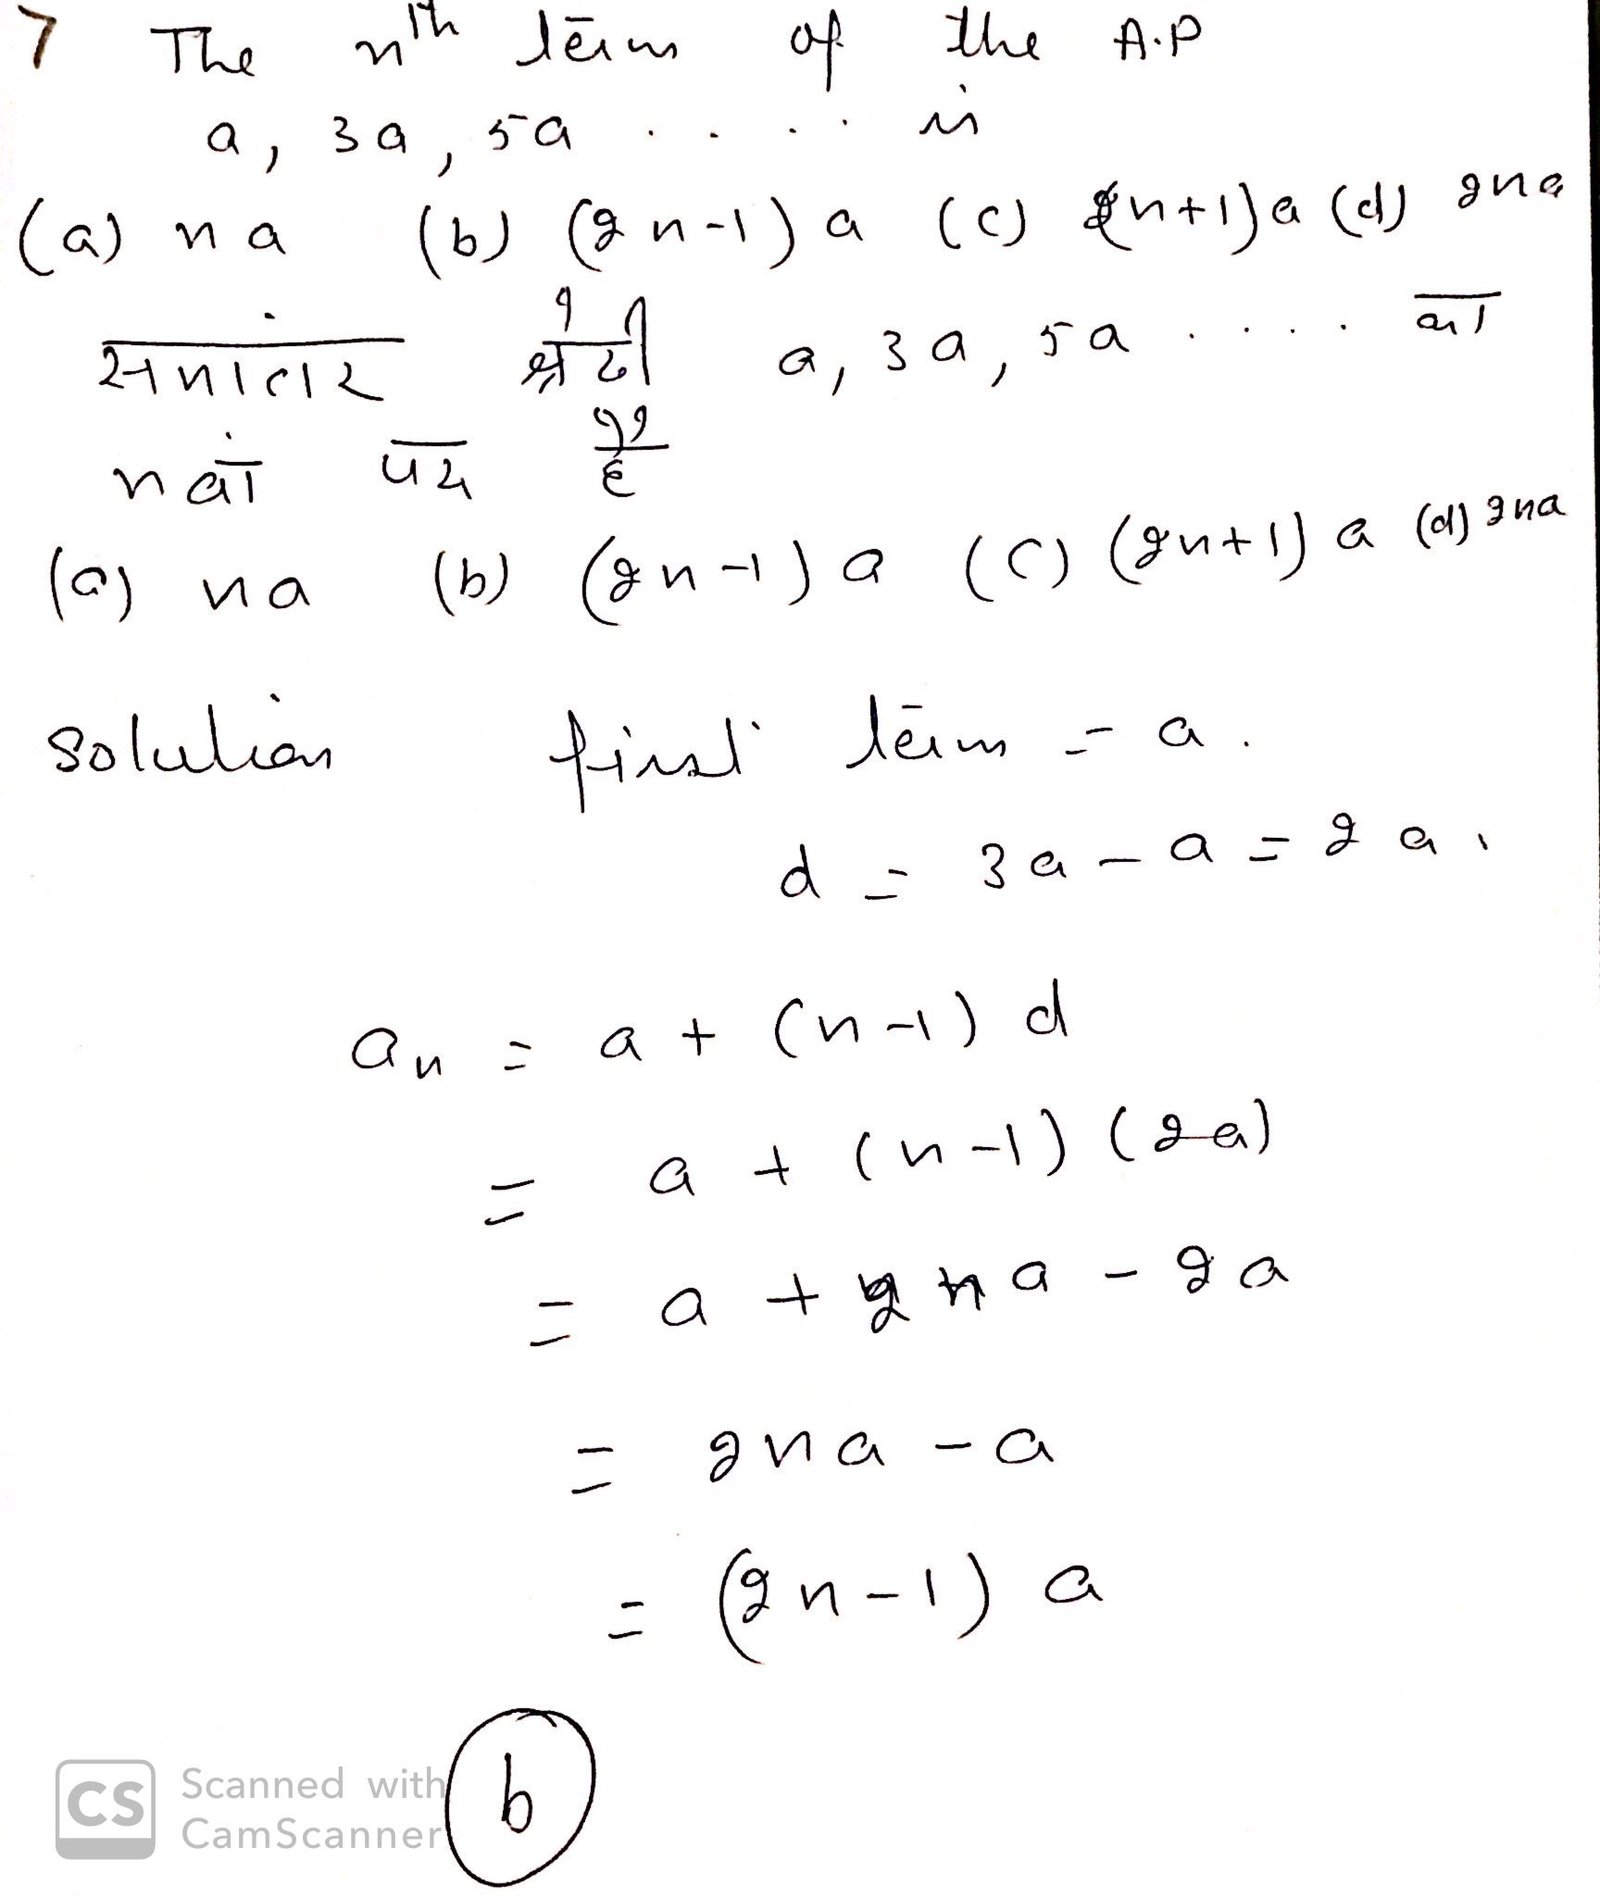 7 The nth term of the A.P
a, 3a, 5a .... is
(a) na (b) (2n-1) a (c) (2n+1)a (d) 2na
समांतर श्रेढ़ी a, 3a, 5a .... का
nवां पद है
(a) na (b) (2n-1) a (c) (2n+1) a (d) 2na
solution first term = a.
d = 3a - a = 2a.
an = a + (n-1) d
= a + (n-1) (2a)
= a + 2na - 2a
= 2na - a
= (2n-1) a
b
CS Scanned with
CamScanner